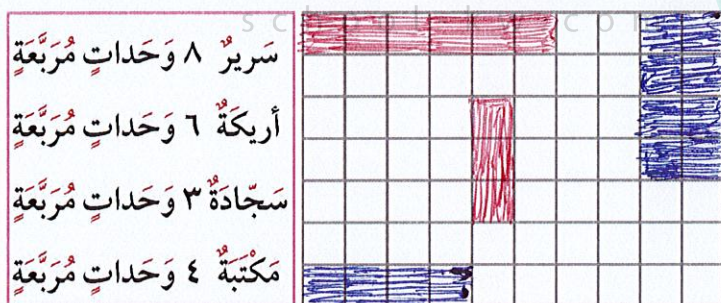 سَريرٌ ٨ وَحَداتٍ مُرَبَّعَةٍ
أريكَةٌ ٦ وَحَداتٍ مُرَبَّعَةٍ
سَجّادَةٌ ٣ وَحَداتٍ مُرَبَّعَةٍ
مَكْتَبَةٌ ٤ وَحَداتٍ مُرَبَّعَةٍ